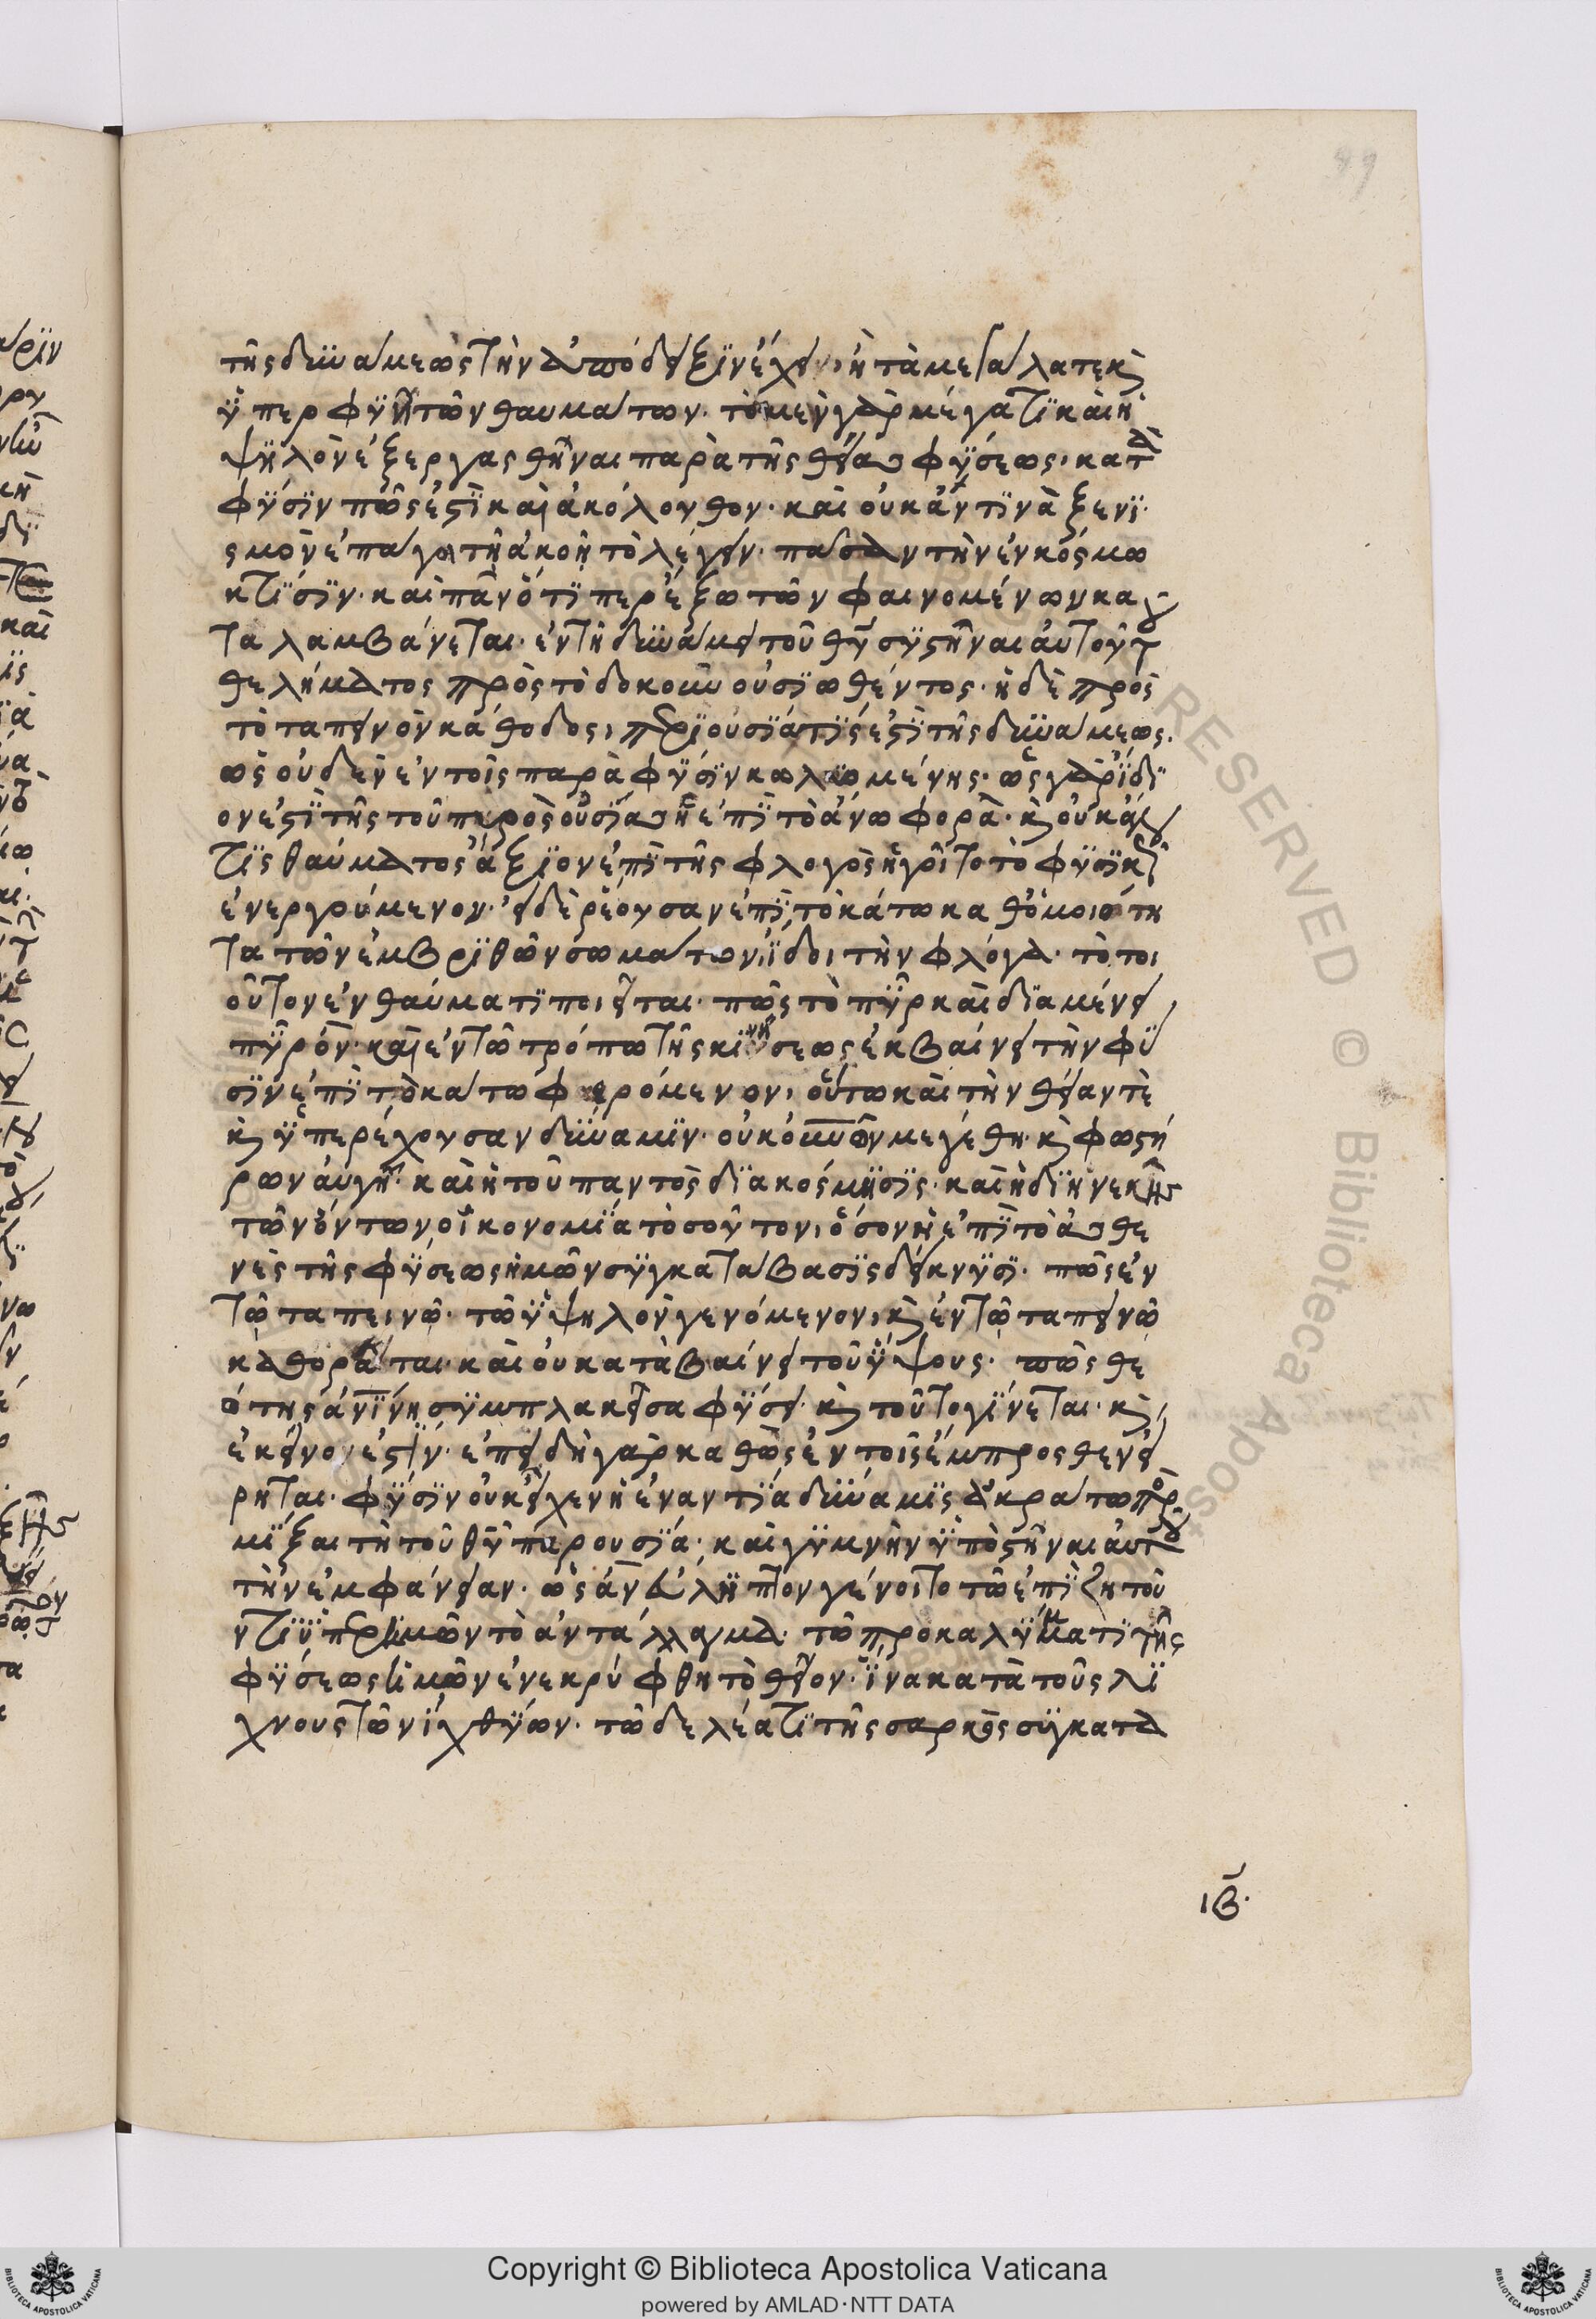 τῆς δυνάμεως τὴν ἀπόδειξιν ἔχει, ἢ τὰ μεγάλα τε καὶ
ὑπερφυῆ τῶν θαυμάτων. τὸ μὲν γὰρ μέγα τι καὶ
ψηλὸν ἐξεργασθῆναι παρὰ τῆς θείας φύσεως. κατὰ
φύσιν πῶς ἐστὶ καὶ ἀκόλουθον. καὶ οὐκ ἄν τινα ξενι
σμὸν ἐπάγοι τῇ ἀκοῇ τὸ λέγειν. πᾶσαν τὴν ἐν κόσμω
κτίσιν. καὶ πᾶν ὅτι περ ἔξω τῶν φαινομένων κα
ταλαμβάνεται. ἐν τῇ δυνάμει τοῦ θυ συστῆναι αὐτοῦ τοῦ
θελήματος πρὸς τὸ δοκοῦν οὐσιωθέντος. ἡ δὲ πρὸς
τὸ ταπεινὸν κάθοδος, περιουσία τίς ἐστι τῆς δυνάμεως.
ὡς οὐδὲν ἐν τοῖς παρὰ φύσιν κωλυομένης. ὡς γὰρ ἴδι
ον ἐστὶ τῆς τοῦ πυρὸς οὐσίας ἡ ἐπὶ τὸ ἄνω φορὰ. καὶ οὐκ ἄν
τις θαύματος ἄξιον ἐπὶ τῆς φλογὸς ἡγοῖτο τὸ φυσικῶς
ἐνεργούμενον. εἰ δὲ ῥέουσαν ἐπὶ τὸ κάτω καθ' ὁμοιότη
τα τῶν ἐμβριθῶν σωμάτων ἴδοι τὴν φλόγα. τὸ τοι
οῦτον ἐν θαύματι ποιεῖται. πῶς τὸ πῦρ καὶ διαμένει
πῦρ ὂν. καὶ ἐν τῶ τρόπω τῆς κινήσεως ἐκβαίνει τὴν φύ
σιν ἐπὶ τὸ κάτω φερόμενον, οὕτω καὶ τὴν θείαν τὲ
καὶ ὑπερέχουσαν δύναμιν. οὐκ οὐνῶν μεγέθη. καὶ φωστή
ρων αὐγὴ. καὶ ἡ τοῦ παντὸς διακόσμησις. καὶ ἡ διηνεκὴς
τῶν ὄντων οἰκονομία τοσοῦτον, ὅσον ἡ ἐπὶ τὸ ἀσθε
νὲς τῆς φύσεως ἡμῶν συγκατάβασις δείκνυσι. πῶς ἐν
τῶ ταπεινῶ. τῶ ὑψηλὸν γενόμενον, καὶ ἐν τῶ ταπεινῶ
καθορᾶται. καὶ οὐ καταβαίνει τοῦ ὕψους. πῶς θε
ότης ἀνίνη συμπλακεῖσα φύσει. καὶ τοῦτο γίνεται. καὶ
ἐκεῖνο ἐστίν. ἐπειδὴ γὰρ καθὼς ἐν τοῖς ἔμπροσθεν εἴ
ρηται. φύσιν οὐκ εἶχεν ἡ ἐναντία δύναμις ἀκράτω προσ
μίξαι τῇ τοῦ θυ παρουσία. καὶ γυμνὴν ὑποστῆναι αὐτοῦ
τὴν ἐμφάνειαν. ὡς ἂν εὔληπτον γένοιτο τῶ ἐπιζητοῦ
ντι ὑπὲρ ἡμῶν τὸ ἀντάλλαγμα. τῶ προκαλύμματι τῆς
φύσεως ἡμῶν ἐνεκρύφθη τὸ θεῖον. ἵνα κατὰ τοὺς λί
χνους τῶν ἰχθύων. τῶ δελέατι τῆς σαρκὸς συγκατα
ιβ.
Copyright © Biblioteca Apostolica Vaticana
powered by AMLAD·NTT DATA